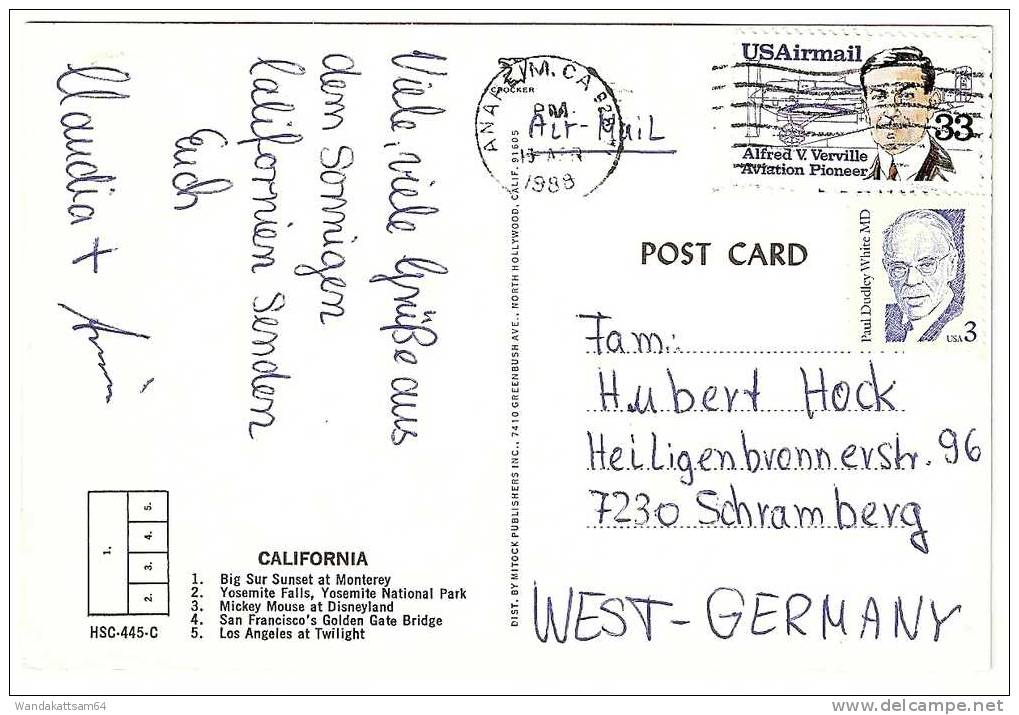 Viele, viele Grüße aus
dem Sonnigen
Californien Senden
Euch
Claudia +
CALIFORNIA
1. Big Sur Sunset at Monterey
2. Yosemite Falls, Yosemite National Park
3. Mickey Mouse at Disneyland
4. San Francisco's Golden Gate Bridge
5. Los Angeles at Twilight
1.
5.
4.
3.
2.
HSC-445-C
DIST. BY MITOCK PUBLISHERS INC., 7410 GREENBUSH AVE., NORTH HOLLYWOOD, CALIF. 91605
ANAHEIM, CA
CROCKER
PM
1988
Air-Mail
USAirmail
33
Alfred V. Verville
Aviation Pioneer
Paul Dudley White MD
USA 3
POST CARD
Fam:
Hubert Hock
Heiligenbronnerstr. 96
7230 Schramberg
WEST-GERMANY
Wandakattsam64
delcampe.net